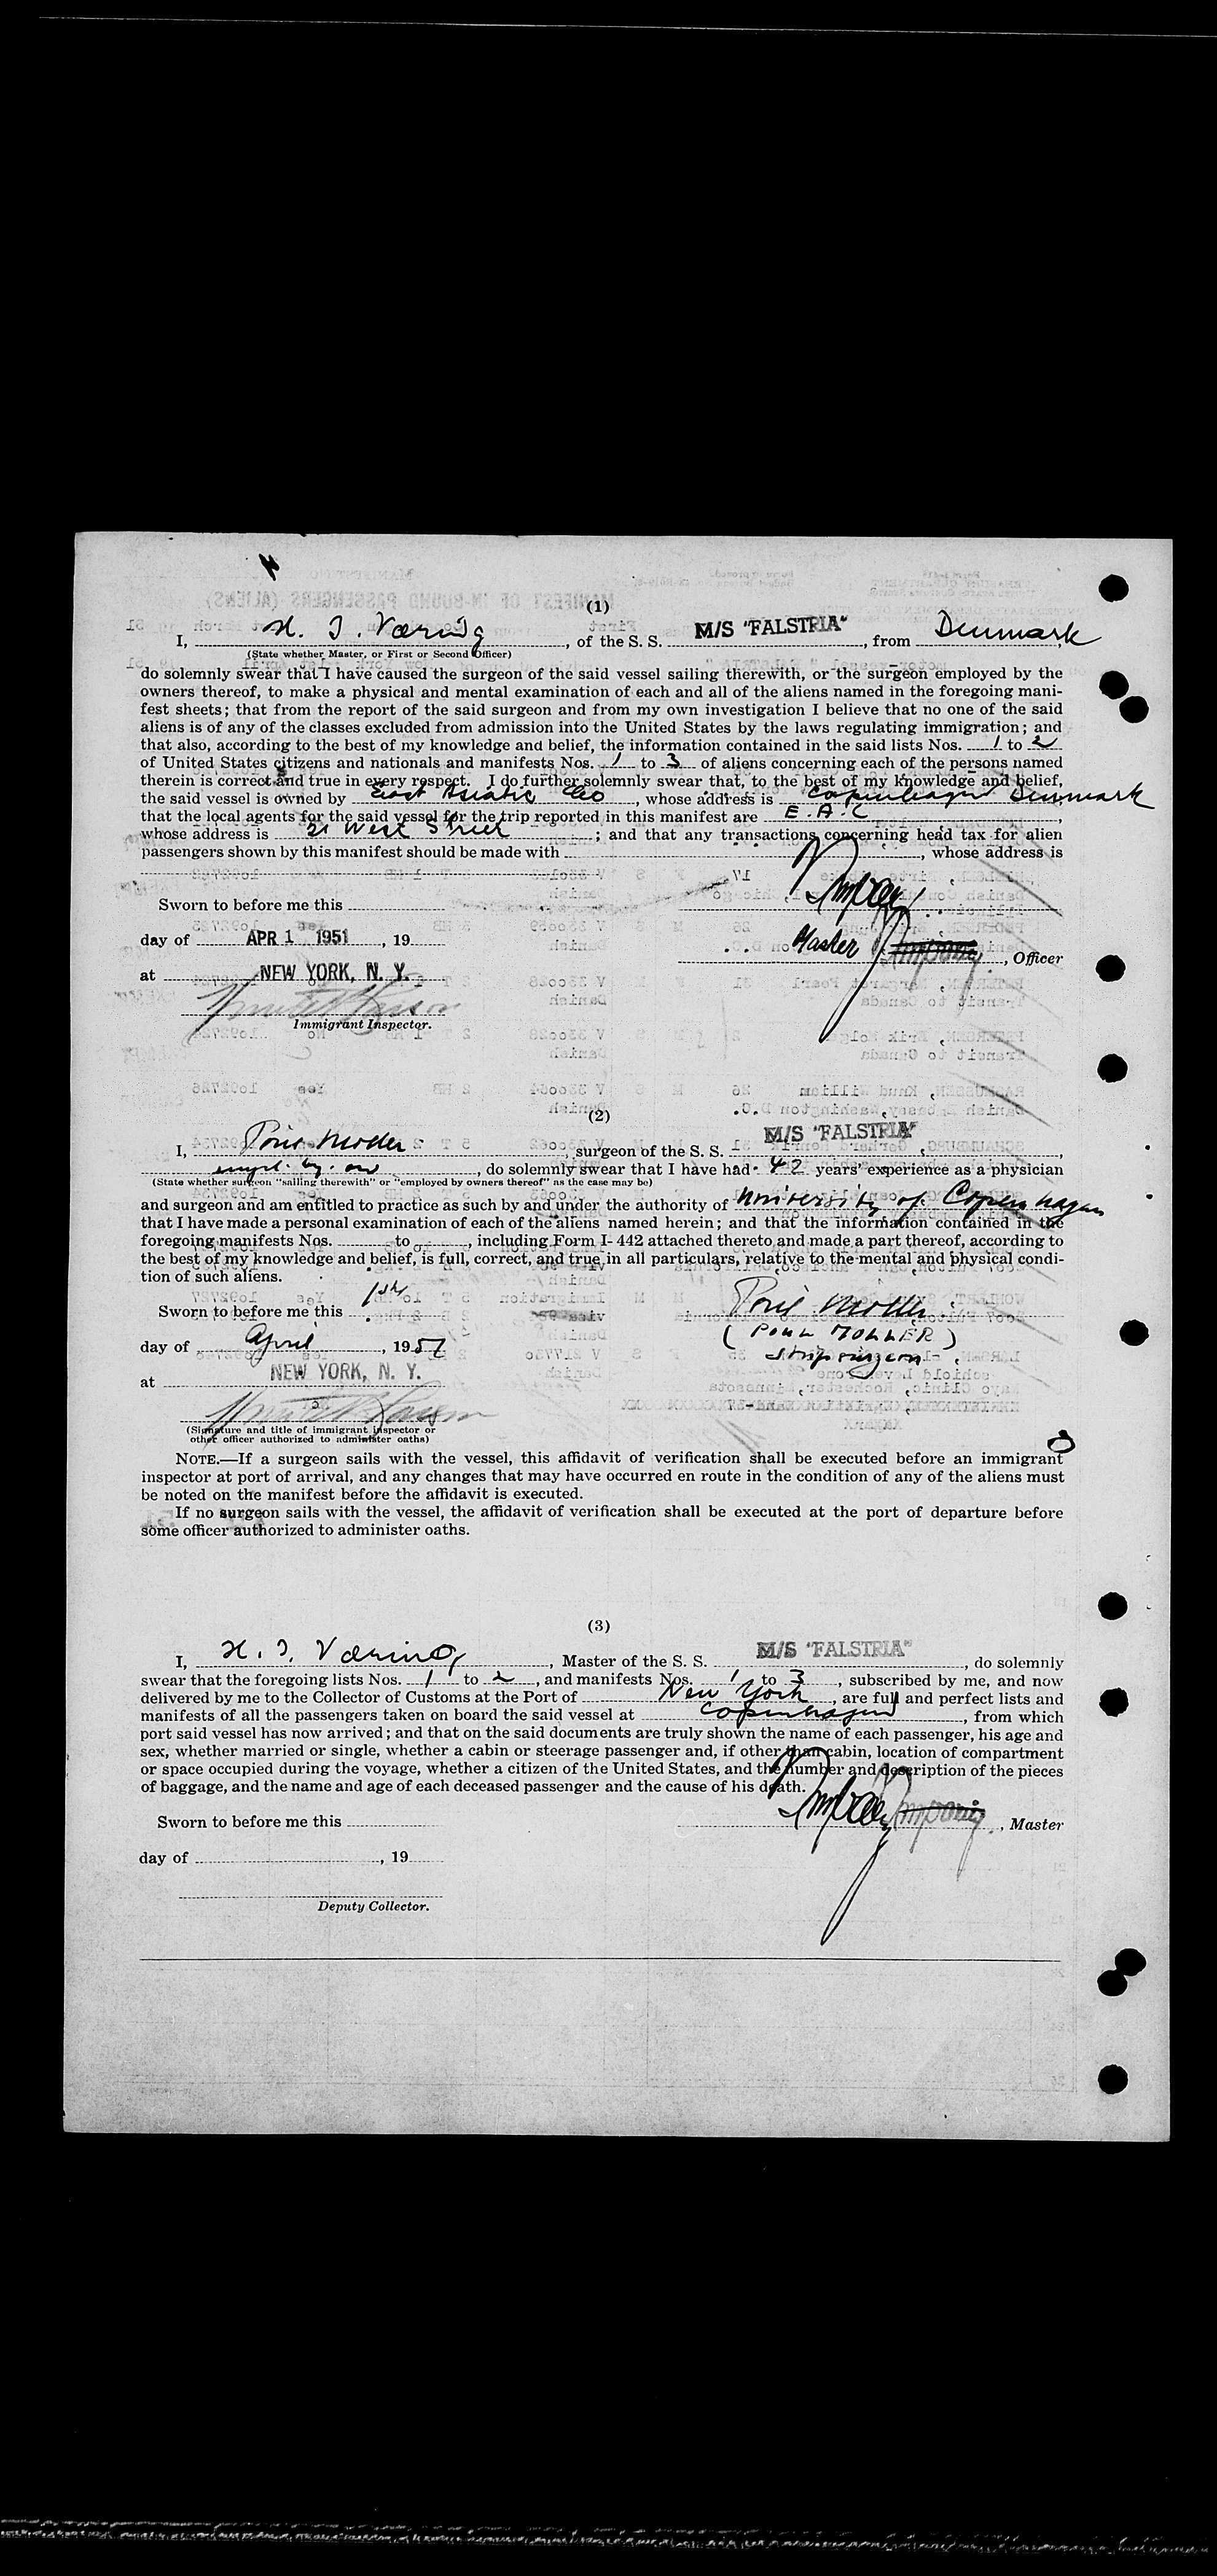 (1)
I, H. I. Væring, of the S. S. M/S "FALSTRIA", from Denmark,
(State whether Master, or First or Second Officer)
do solemnly swear that I have caused the surgeon of the said vessel sailing therewith, or the surgeon employed by the
owners thereof, to make a physical and mental examination of each and all of the aliens named in the foregoing mani-
fest sheets; that from the report of the said surgeon and from my own investigation I believe that no one of the said
aliens is of any of the classes excluded from admission into the United States by the laws regulating immigration; and
that also, according to the best of my knowledge and belief, the information contained in the said lists Nos. 1 to 2
of United States citizens and nationals and manifests Nos. 1 to 3 of aliens concerning each of the persons named
therein is correct and true in every respect. I do further solemnly swear that, to the best of my knowledge and belief,
the said vessel is owned by East Asiatic Co, whose address is Copenhagen Denmark
that the local agents for the said vessel for the trip reported in this manifest are E.A.C,
whose address is 21 West Street; and that any transactions concerning head tax for alien
passengers shown by this manifest should be made with , whose address is
Sworn to before me this
day of APR 1 1951, 19
Master, Officer
at NEW YORK, N. Y.
Immigrant Inspector.
(2)
I, Poul Moller, surgeon of the S. S. M/S "FALSTRIA",
empl. by. , do solemnly swear that I have had 42 years' experience as a physician
(State whether surgeon "sailing therewith" or "employed by owners thereof" as the case may be)
and surgeon and am entitled to practice as such by and under the authority of University of Copenhagen
that I have made a personal examination of each of the aliens named herein; and that the information contained in the
foregoing manifests Nos. to , including Form I-442 attached thereto and made a part thereof, according to
the best of my knowledge and belief, is full, correct, and true in all particulars, relative to the mental and physical condi-
tion of such aliens.
Sworn to before me this 1st
Poul Moller
day of April, 1951
(POUL MOLLER)
ship surgeon.
at NEW YORK, N. Y.
(Signature and title of immigrant inspector or
other officer authorized to administer oaths)
NOTE.—If a surgeon sails with the vessel, this affidavit of verification shall be executed before an immigrant
inspector at port of arrival, and any changes that may have occurred en route in the condition of any of the aliens must
be noted on the manifest before the affidavit is executed.
If no surgeon sails with the vessel, the affidavit of verification shall be executed at the port of departure before
some officer authorized to administer oaths.
(3)
I, H. I. Væring, Master of the S. S. M/S "FALSTRIA", do solemnly
swear that the foregoing lists Nos. 1 to 2, and manifests Nos. 1 to 3, subscribed by me, and now
delivered by me to the Collector of Customs at the Port of New York, are full and perfect lists and
manifests of all the passengers taken on board the said vessel at Copenhagen, from which
port said vessel has now arrived; and that on the said documents are truly shown the name of each passenger, his age and
sex, whether married or single, whether a cabin or steerage passenger and, if other than cabin, location of compartment
or space occupied during the voyage, whether a citizen of the United States, and the number and description of the pieces
of baggage, and the name and age of each deceased passenger and the cause of his death.
Sworn to before me this
, Master
day of , 19
Deputy Collector.